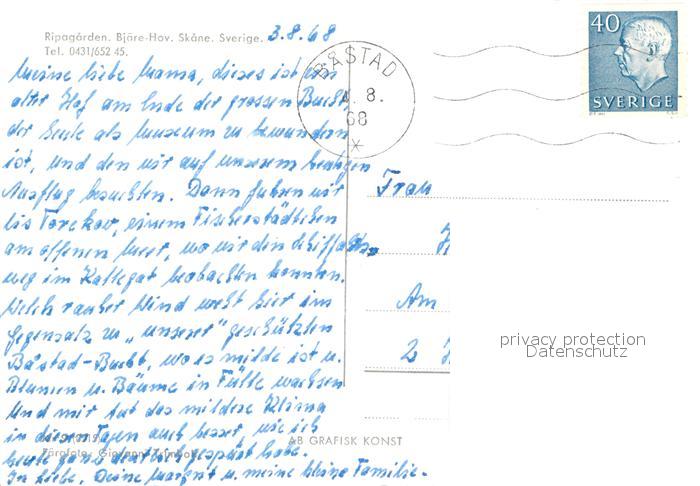 Ripagården. Bjäre-Hov. Skåne. Sverige. 3.8.68
Tel. 0431/652 45.
Meine liebe Mama, dieses ist ein
alter Hof am Ende der grossen Bucht,
der heute als Museum zu bewundern
ist, und den wir auf unserem heutigen
Ausflug besuchten. Dann fuhren wir
bis Torekov, einem Fischerstädtchen
am offenen Meer, wo wir den Schiffahrts
weg im Kattegat beobachten konnten.
Welch rauher Wind weht hier im
Gegensatz zu „unserer" geschützten
Båstad-Bucht, wo es milde ist u.
Blumen u. Bäume in Fülle wachsen
Und mir tut das mildere Klima
in diesen Tagen auch besser, wie ich
heute ganz deutlich gespürt habe.
In Liebe, Deine Margrit u. meine kleine Familie.
BÅSTAD
4. 8.
68
40
SVERIGE
Frau
Am
2
privacy protection
Datenschutz
AB GRAFISK KONST
Färgfoto: Giovanni